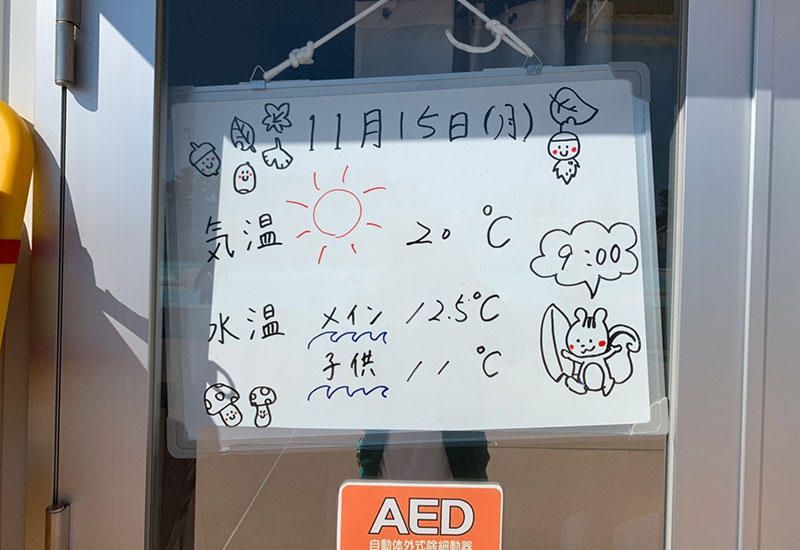 11月15日(月)
気温 20℃
9:00
水温 メイン 12.5℃
子供 11℃
AED
自動体外式除細動器